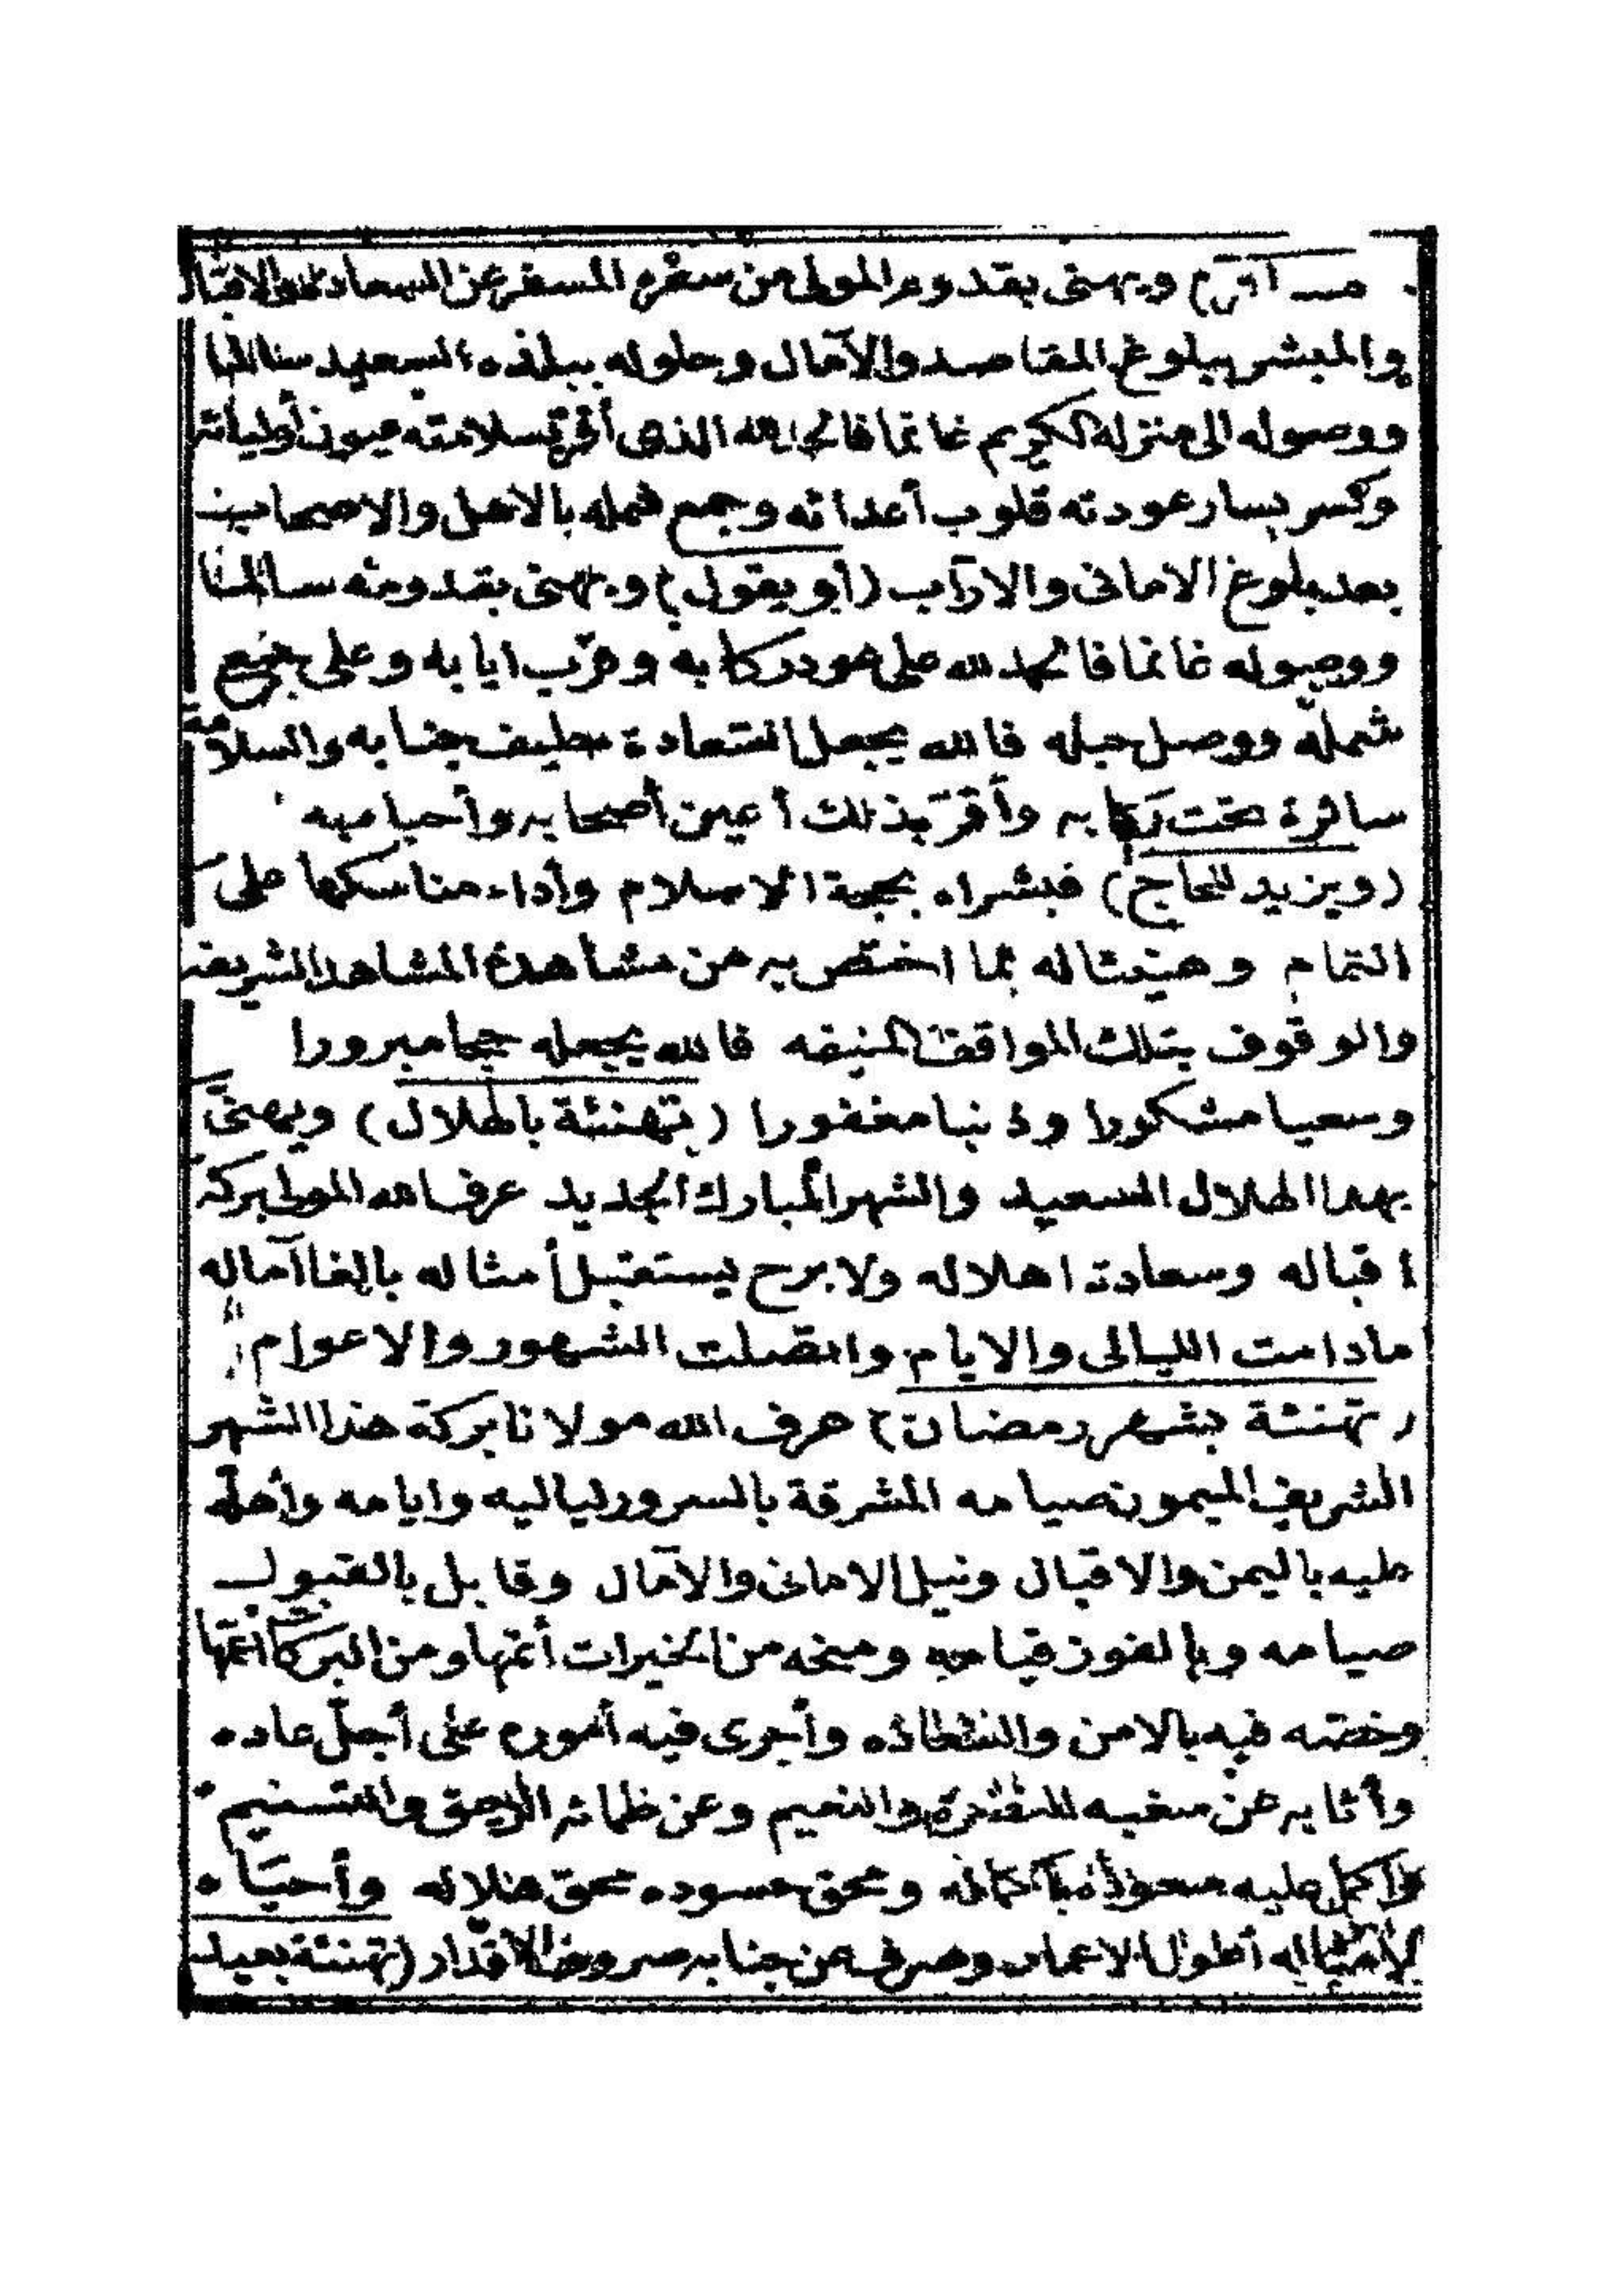 ويهنى بقدوم المولى من سفره المسفر عن السعادة والاقبال
والمبشر ببلوغ المقاصد والآمال وحلوله ببلده السعيد سالما
ووصوله الى منزله الكريم غانما فالحمد لله الذى أقر بسلامته عيون أوليائه
وكسر بسار عودته قلوب أعدائه وجمع شمله بالاهل والاصحاب
بعد بلوغ الامانى والارآب (أو يقول) ويهنى بقدومه سالما
ووصوله غانما فالحمد لله على عود ركابه وقرّب ايابه وعلى جمع
شمله ووصل حبله فالله يجعل السعادة حليف جنابه والسلامة
سائرة تحت ركابه وأقرّ بذلك أعين أصحابه وأحبابه
(ويزيد للحاج) فبشراه بحجة الاسلام وأداء مناسكها على
التمام وهنيئا له بما اختص به من مشاهدة المشاهد الشريفه
والوقوف بتلك المواقف المنيفه فالله يجعله حجا مبرورا
وسعيا مشكورا وذنبا مغفورا (تهنئة بالهلال) ويهنى
بهذا الهلال السعيد والشهر المبارك الجديد عرف الله المولى بركة
اقباله وسعادة اهلاله ولا برح يستقبل أمثاله بالغا آماله
مادامت الليالى والايام واتصلت الشهور والاعوام
(تهنئة بشهر رمضان) عرف الله مولانا بركة هذا الشهر
الشريف الميمون صيامه المشرقة بالسرور لياليه وايامه وأهله
عليه باليمن والاقبال ونيل الامانى والآمال وقابل بالقبول
صيامه وبالفوز قيامه ومنحه من الخيرات أتمها ومن البركات أعمها
وخصه فيه بالامن والسعاده وأجرى فيه أموره على أجلّ عاده
وأثابه عن سغبه والنعيم وعن ظمائه الرحيق والتسنيم
وأكمل عليه سعوده كماله ومحق حسوده محق هلاله وأحياه
لامثاله أطول الاعمار وصرف عن جنابه صروف الاقدار (تهنئة بعيد